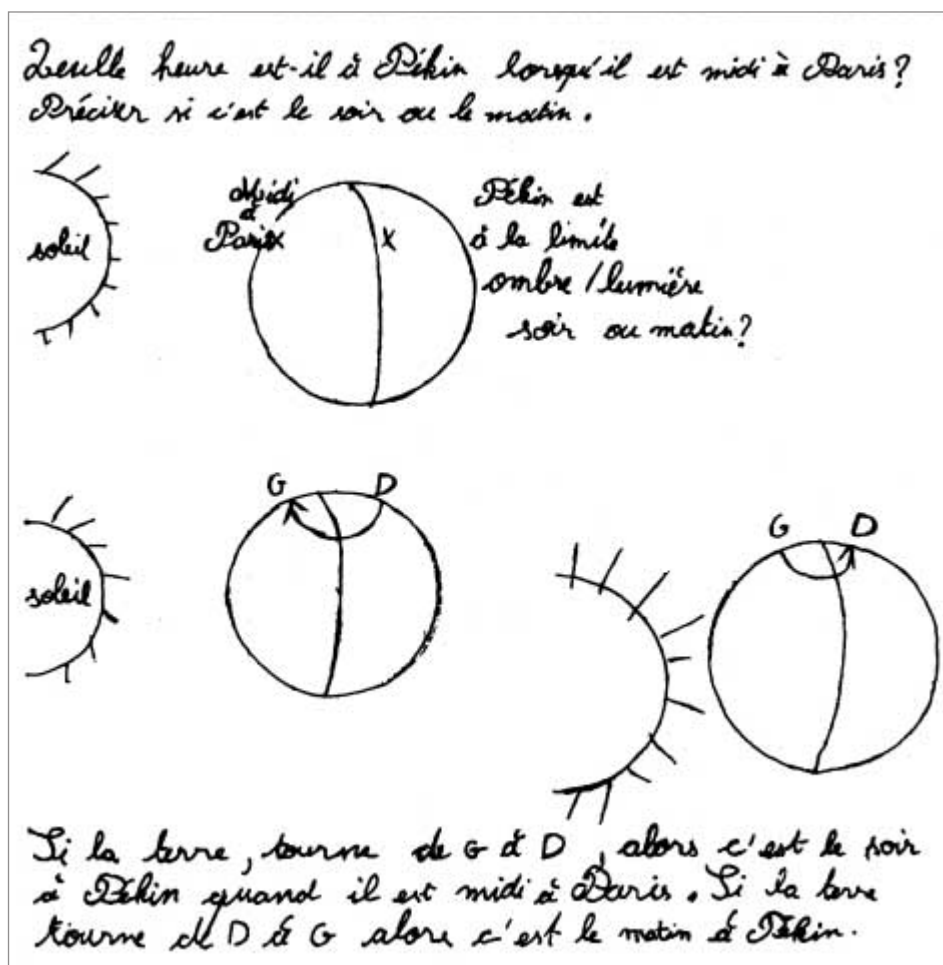 Quelle heure est-il à Pékin lorsqu'il est midi à Paris?
Préciser si c'est le soir ou le matin.
soleil
Midi
à
Paris x
X
Pékin est
à la limite
ombre / lumière
soir ou matin?
soleil
G D
G D
Si la terre, tourne de G à D, alors c'est le soir
à Pékin quand il est midi à Paris. Si la terre
tourne de D à G alors c'est le matin à Pékin.